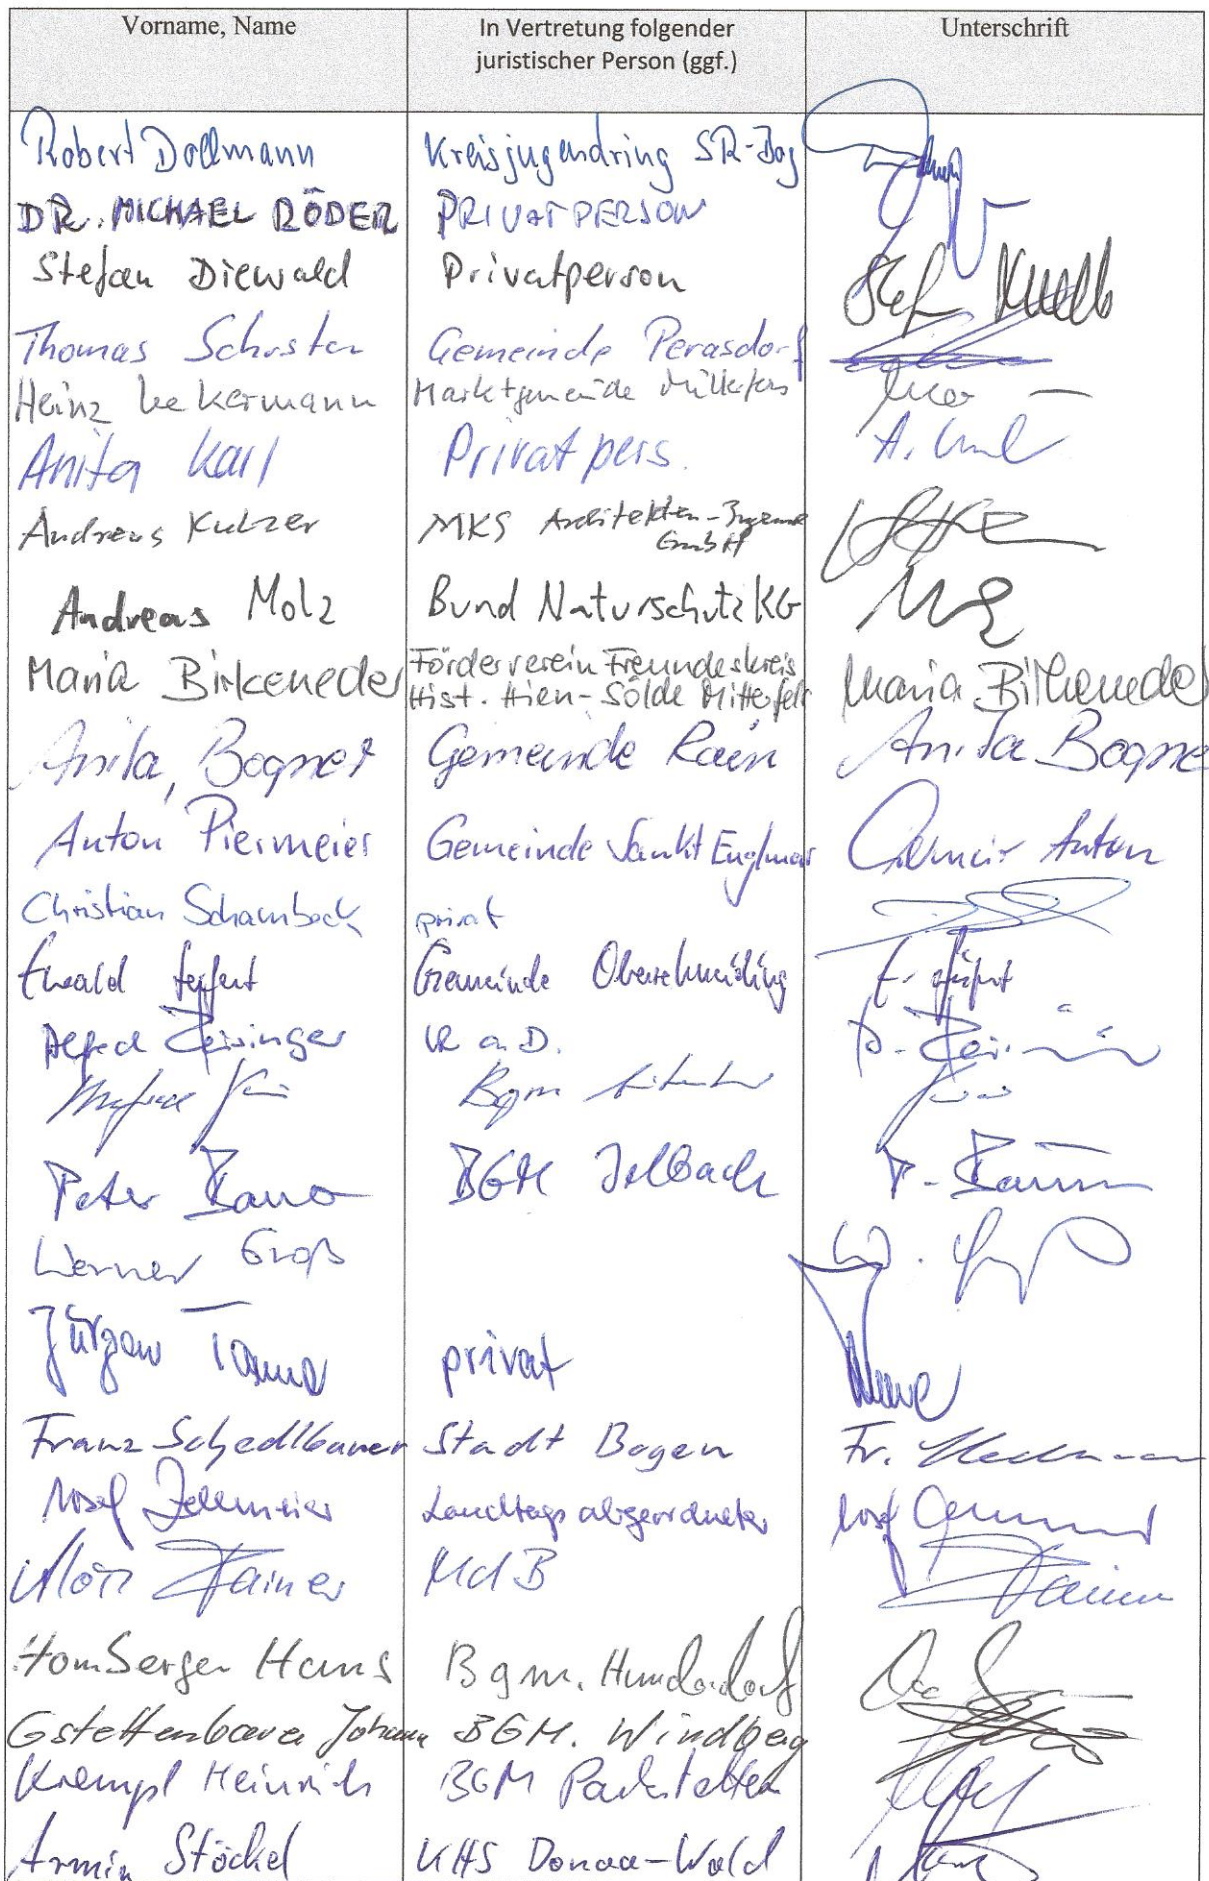 Vorname, Name In Vertretung folgender Unterschrift
juristischer Person (ggf.)
Robert Dollmann Kreisjugendring SR-Bog
DR. MICHAEL RÖDER PRIVATPERSON
Stefan Diewald Privatperson
Thomas Schuster Gemeinde Perasdorf
Heinz Uekermann Marktgemeinde
Anita Karl Privatpers. A. Karl
Andreas Kutzer MKS Architekten-
GmbH
Andreas Molz Bund Naturschutz KG
Maria Birkeneder Förderverein Freundeskreis Maria Birkeneder
Hist. Hien-Sölde Mitterfels
Anita, Bogner Gemeinde Rain Anita Bogne
Anton Piermeier Gemeinde Sankt Englmar Anton
Christian Schambeck privat
Ewald Seifert Gemeinde Oberschneiding E. Seifert
Alfred Reisinger
Bgm
Peter Bauer BGM
Werner Groß W.
Jürgen privat
Franz Schedlbauer Stadt Bogen Fr.
Josef Zellmeier Landtagsabgeordneter Josef
Alois Rainer MdB Rainer
Hornberger Hans Bgm. Hunderdorf
Gstettenbauer Johann BGM. Windberg
Krempl Heinrich BGM Parkstetten
Armin Stöckel KHS Donau-Wald